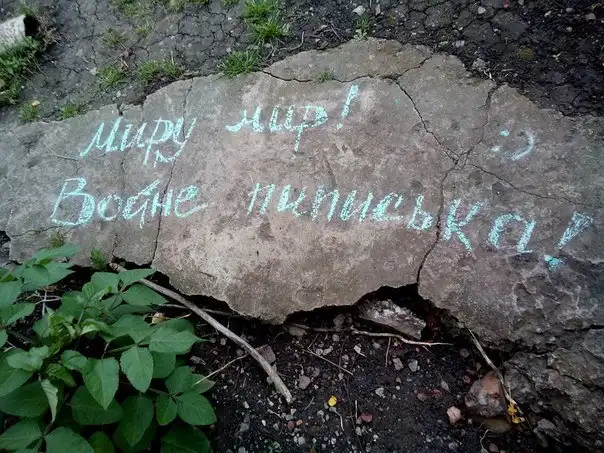 Миру мир! :-)
Войне пиписька!